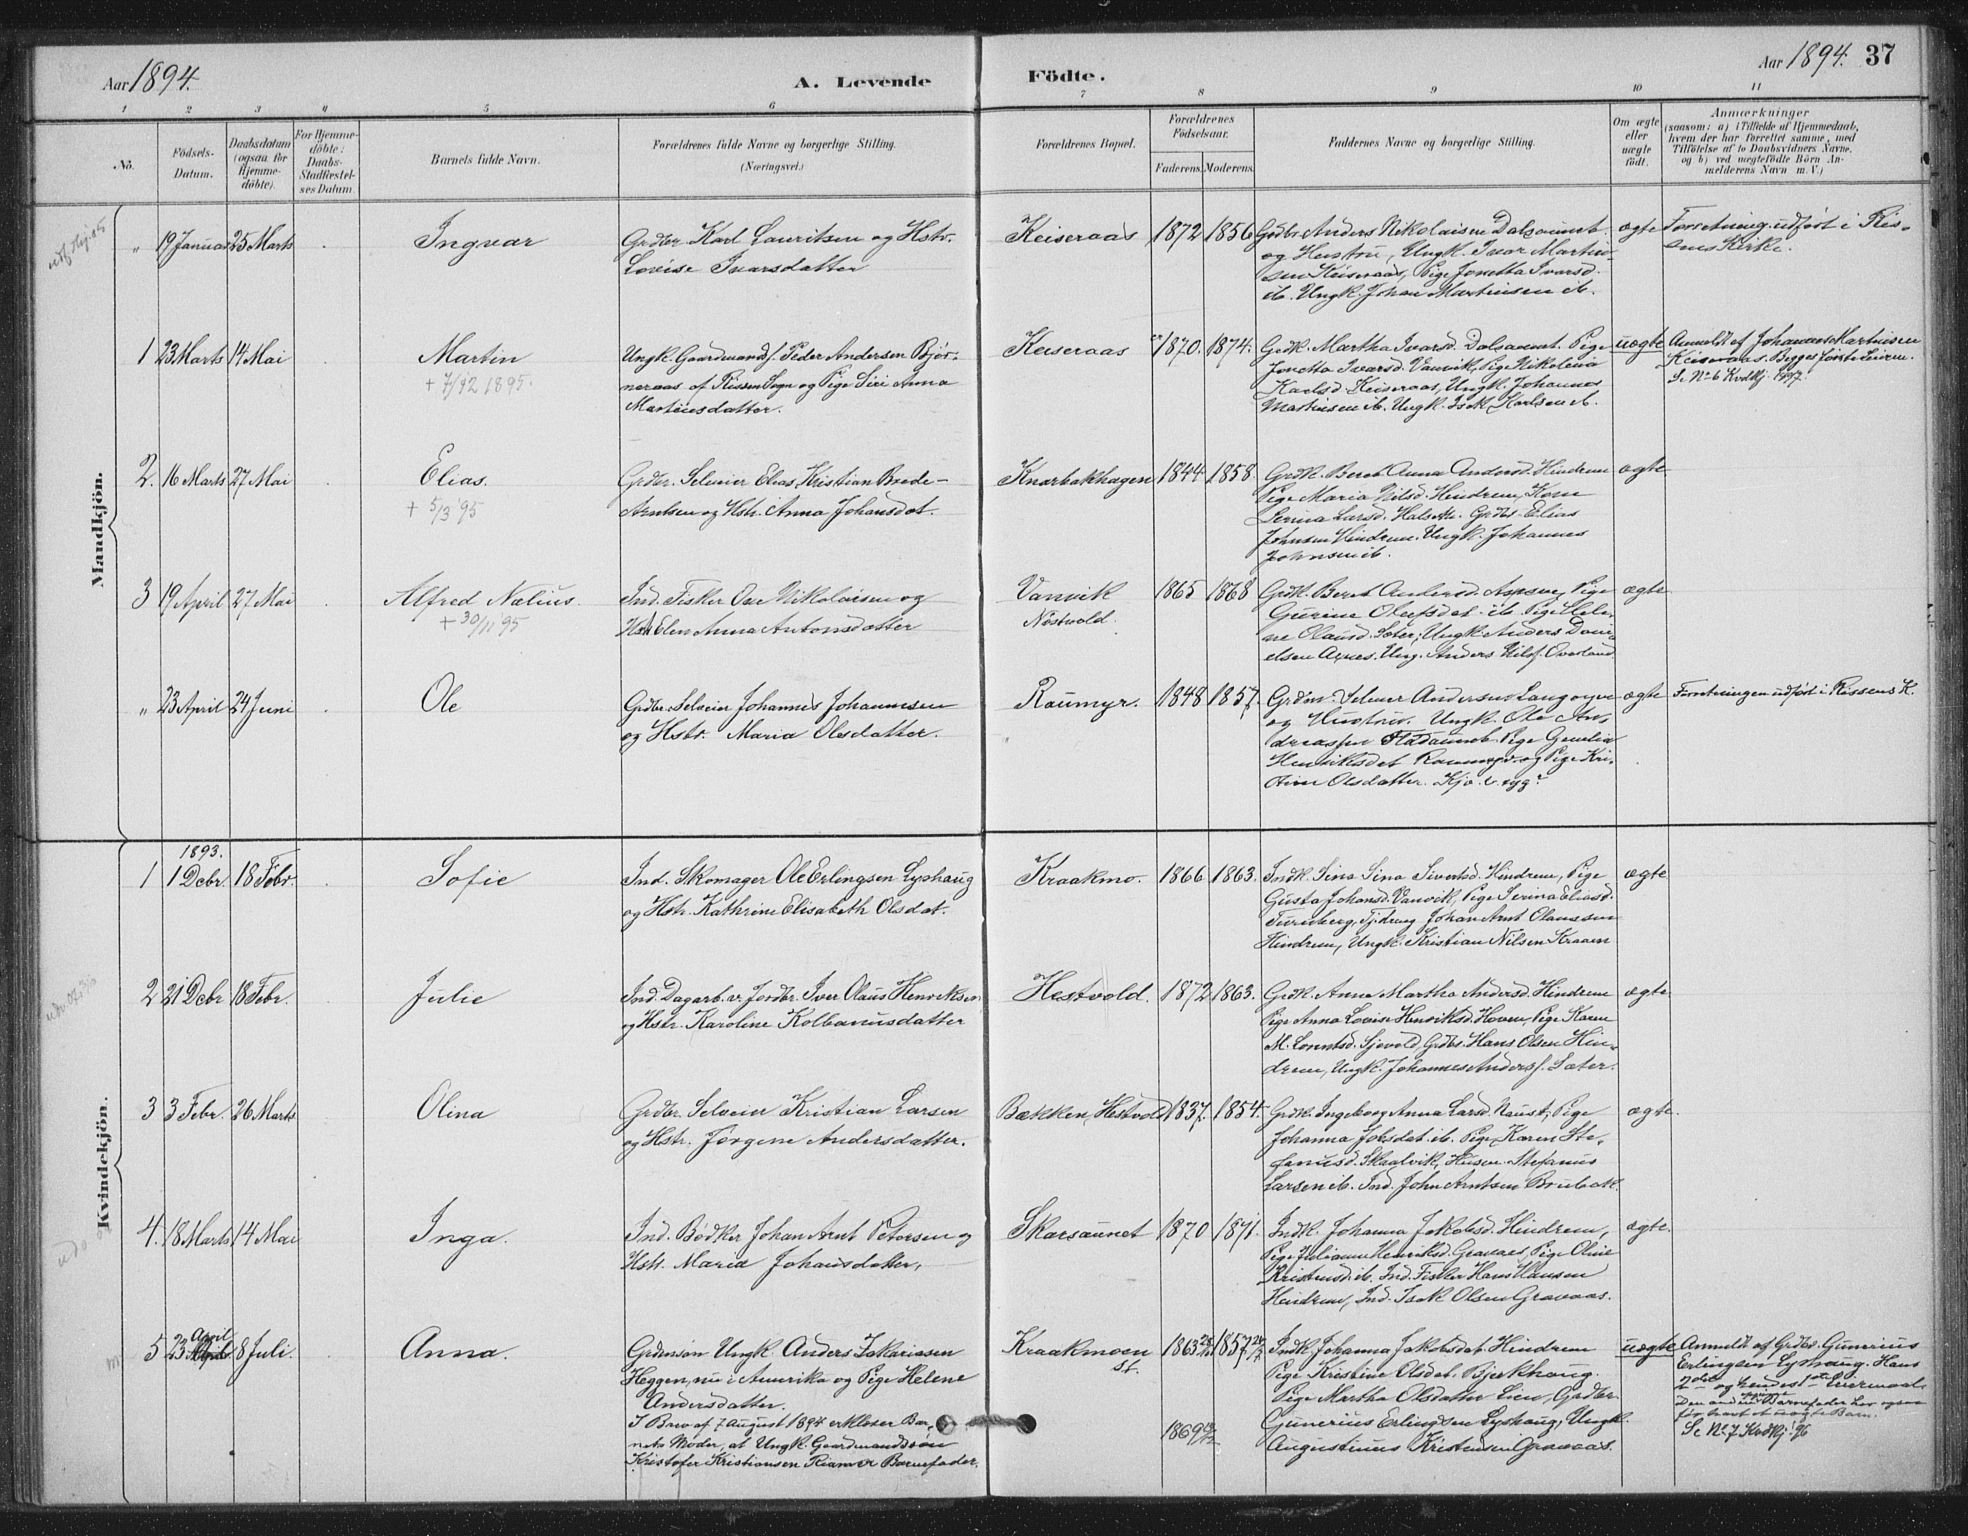 Aar 1894.
A. Levende Födte.
Aar 1894. 37
1 2 3 4 5 6 7 8 9 10 11
No.
Födsels-Datum.
Daabsdatum (ogsaa for Hjemme-döbte).
For Hjemme-döbte: Daabs-Stadfæstel-ses Datum.
Barnets fulde Navn.
Forældrenes fulde Navne og borgerlige Stilling.
(Næringsvei.)
Forældrenes Bopæl.
Forældrenes Födselsaar.
Faderens. Moderens.
Faddernes Navne og borgerlige Stilling.
Om ægte eller uægte födt.
Anmærkninger
(saasom: a) i Tilfælde af Hjemmedaab,
hvem der har forrettet samme, med
Tilföielse af to Daabsvidners Navne,
og b) ved uægtefödte Börn An-
melderens Navn m. V.)
Mandkjön.
" 19 Januar 25 Marts Ingvar
Grdbr. Karl Lauritsen og Hstr.
Lovise Ivarsdatter
Keiseraas 1872 1856
Grdbr. Anders Nikolaisen Dalsaunet
og Hustru, Ungk. Ivar Martin-
sen Keiseraas, Pige Jonetta Ivarsd.
ib. Ungk. Johan Martinsen ib.
ægte
Forretning udført i Ris-
sens Kirke.
1 23 Marts 14 Mai Martin
+ 7/12 1895.
Ungk. Gaardmands. Peder Andersen Bjør-
neraas af Rissen Sogn og Pige Siri Anna
Martinsdatter.
Keiseraas 1870. 1874.
Grdk. Martha Ivarsd. Dalsaunet. Pige
Jonetta Ivarsd. Vanvik, Pige Nikolina
Karlsd. Keiseraas, Ungk. Johannes
Martinsen ib. Ungk. Isak Karlsen ib.
uægte
Anmeldt af Johannes Martinsen
Keiseraas. Begges første Leierm.
Se No 6 Kvdkj. 1897.
2. 16 Marts 27 Mai Elias.
+ 5/3 95
Grdbr. Selveier Elias Kristian Brede-
Arntsen og Hstr. Anna Johansdat.
Knarbakhagen 1844 1858.
Grdk. Beret Anna Andersd. Hindrem
Pige Maria Nilsd. Hindrem, Kone
Serina Larsd. Grdbr. Elias
Johnsen Hindrem. Ungk. Johannes
Johnsen ib.
ægte
3 19 April 27 Mai Alfred Nælius.
+ 30/11 95
Ind. Fisker Ove Nikolaisen og
Hstr Elen Anna Antonsdatter
Vanvik
Nøstvold.
1865 1868
Grdk. Beret Andersd. Pige
Gurine Olufsdat. ib. Pige Heli-
ne Olausd. Sæter, Ungk. Anders Dani-
elsen Axnes. Ung. Anders Nilss. Overland
ægte
" 23 April 24 Juni Ole
Grdbr. Selveier Johannes Johannesen
og Hstr. Maria Olesdatter.
Raumyr. 1848 1857.
Grdbr. Selmer Andersen
og Hustru. Ungk. Ole An-
dreassen Pige
Henriksdat Raumyr og Pige Kri-
stine Olsdatter.
ægte
Forretningen udført i Rissens K.
Kvindekjön.
1893.
1 1 Decbr. 18 Febr. Sofie
Ind. Skomager Ole Erlingsen Lyshaug
og Hstr. Kathrine Elisabeth Olsdat.
Kraakmo. 1866 1863.
Indk. Sina Sivertsd. Hindrem, Pige
Gusta Johansd. Vanvik, Pige Serina Eliasd.
Tjdreng Johan Arnt Olaussen
Hindrem, Ungk. Kristian Nilsen Kraaen
ægte
2 21 Decbr 18 Febr. Julie
Ind. Dagarb. av Jordbr. Iver Olaus Henriksen
og Hstr. Karoline Kolbanusdatter
Hestvold. 1872 1863.
Grdk. Anna Martha Andersd. Hindrem
Pige Anna Lovise Henriksd. Hoven, Pige Karen
M. Lorntsd. Sjøvold, Grdbr. Hans Olsen Hin-
drem, Ungk. Johannes Anderss. Sæter.
ægte
3 3 Febr. 26 Marts Olina
Grdbr. Selveier Kristian Larsen
og Hstr. Jørgine Andersdatter.
Bækken, Hestvold 1837. 1854.
Grdk. Ingeborg Anna Larsd. Naust, Pige
Johanna Jobsdat. ib. Pige Karen Ste-
fanusd. Skaalvik, Husm. Stefanus
Larsen ib. Ind. John Arntsen Brubak.
ægte.
4. 18 Marts 14 Mai Inga.
Ind. Bødker Johan Arnt Petersen og
Hstr. Maria Johansdatter,
Skarsaunet 1870 1871.
Indk. Johanna Jakobsd. Hindrem,
Pige Julianna Henriksd. Gravaas, Pige Oline
Kristensd. ib. Ind. Fisker Hans Hansen
Hindrem, Ind. Isak Olsen Gravaas.
ægte.
5 23 April 8 Juli. Anna.
Grdmsøn Ungk. Anders Zakariassen
Heggen, nu i Amerika og Pige Helene
Andersdatter.
I Brev af 7 August 1894 erklærer Bar-
nets Moder, at Ungk. Gaardmandssøn
Kristofer Kristiansen Ramer Barnefader.
Kraakmoen
st.
1863 1857
1869
Indk. Johanna Jakobsdat. Hindrem
Pige Kristine Olsdat. Bjerkhaug.
Pige Martha Olsdatter Lien, Grdbr.
Gunerius Erlingsen Lyshaug, Ungk.
Augustinus Kristensen Gravaas.
uægte
Anmeldt af Grdbr. Gunerius
Erlingsen Lyshaug. Hans
2det og hendes 1ste Leiermaal.
Den anden Barnefader har ogsaa
før havt et uægte Barn.
Se No 7 Kvdkj. 96